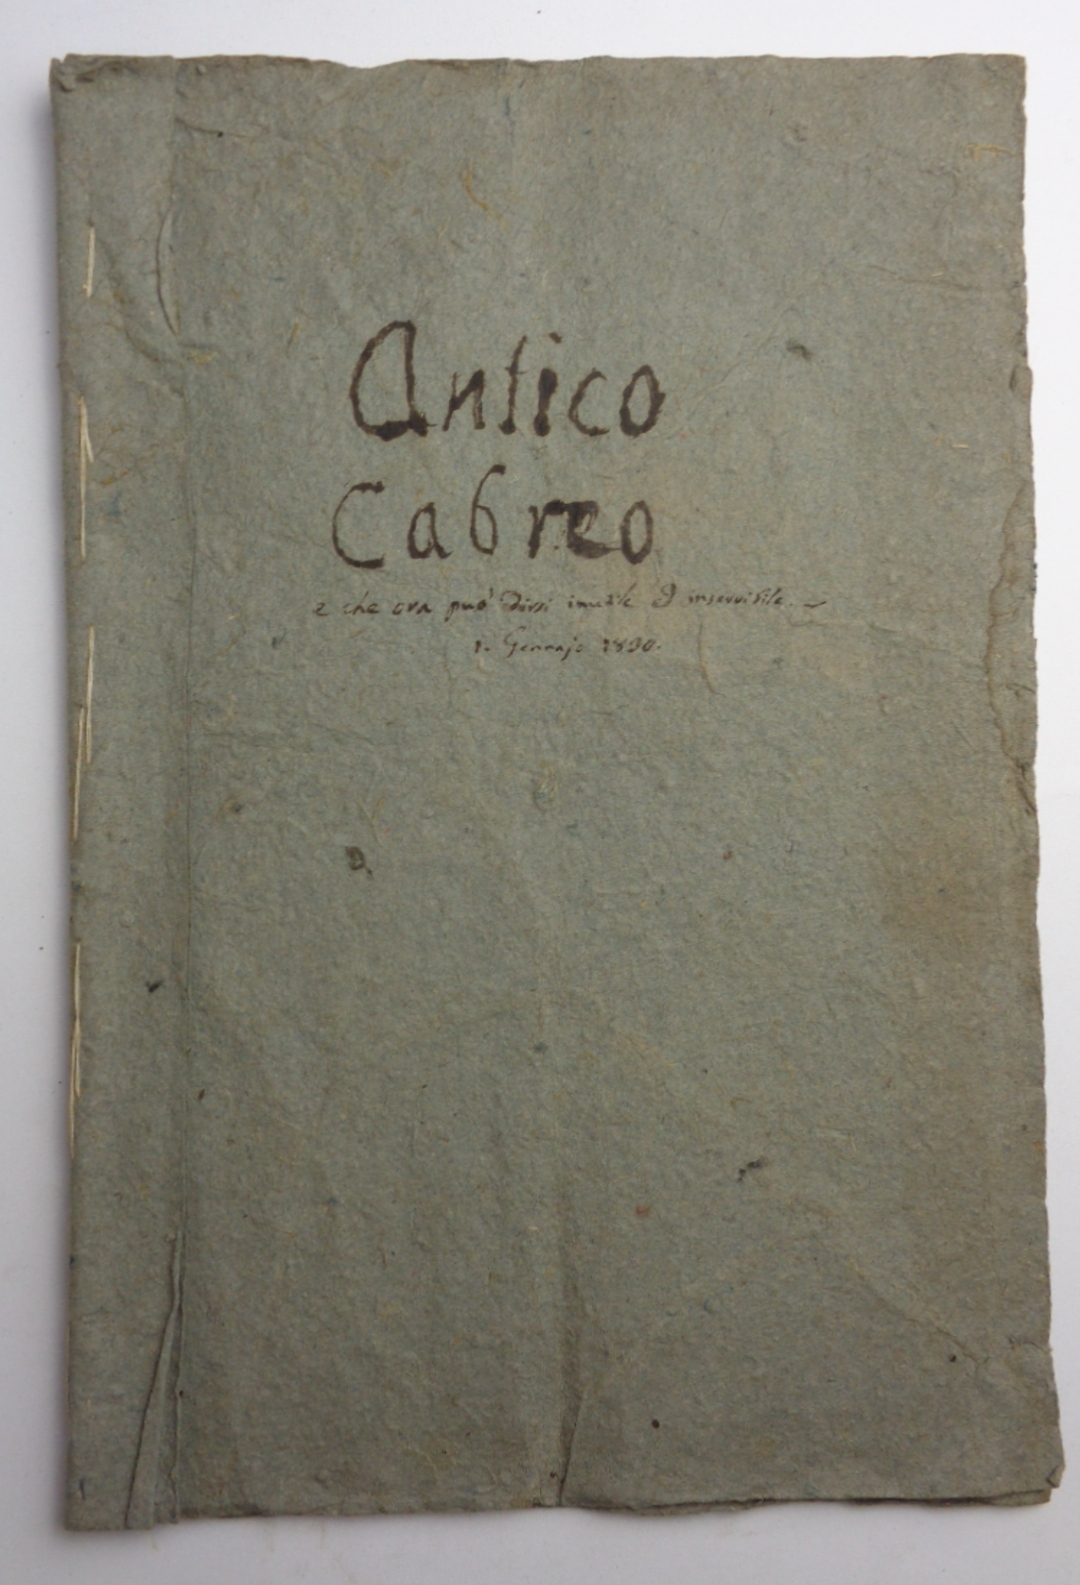 Antico
Cabreo
e che ora può dirsi inutile ed inservibile.
1. Gennajo